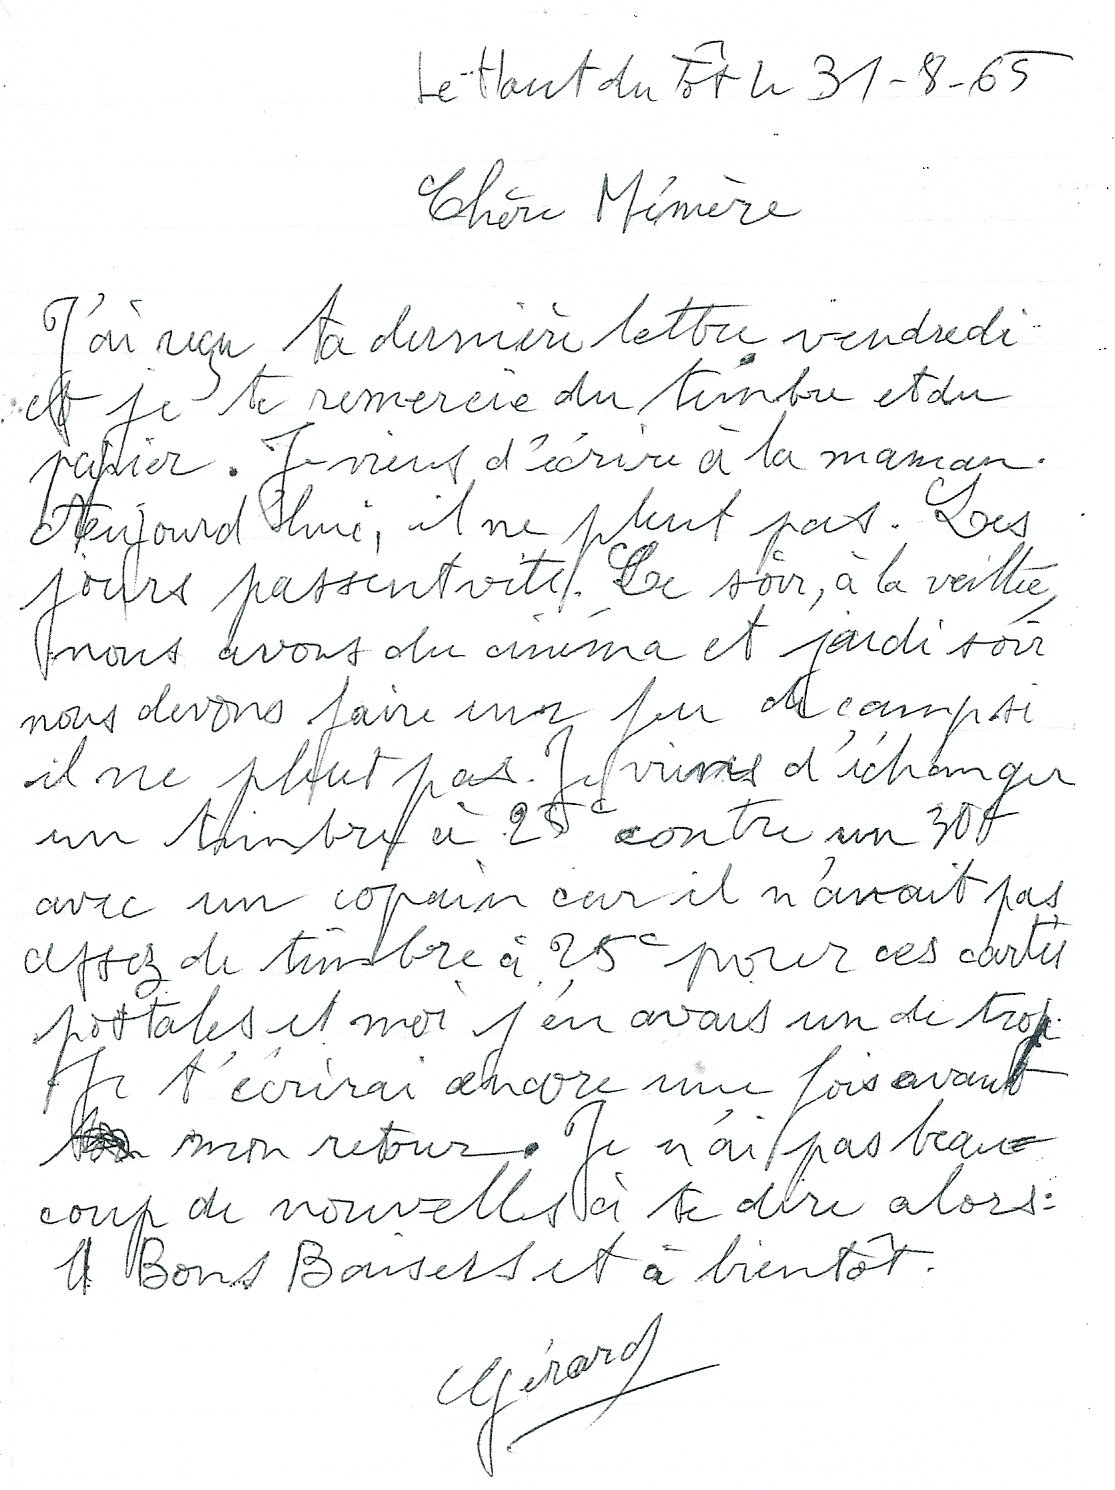 Le Haut du Tôt le 31-8-65
Chère Mémère
J'ai reçu ta dernière lettre vendredi
et je te remercie du timbre et du
papier. Je viens d'écrire à la maman.
Aujourd'hui, il ne pleut pas. Les
jours passent vite. Le soir, à la veillée,
nous avons du cinéma et jeudi soir
nous devons faire un feu de camp si
il ne pleut pas. Je viens d'échanger
un timbre à 25c contre un 30c
avec un copain car il n'avait pas
assez de timbre à 25c pour ces cartes
postales et moi j'en avais un de trop.
Je t'écrirai encore une fois avant
mon retour. Je n'ai pas beau=
coup de nouvelles à te dire alors:
Bons Baisers et à bientôt.
Gérard